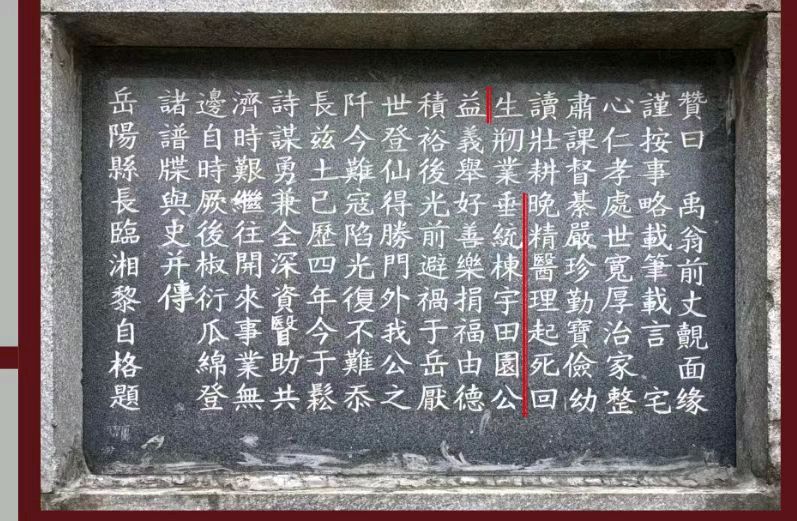 贊曰 禹翁前丈覿面缘
謹按事略載筆載言 宅
心仁孝處世寬厚治家整
肅課督綦嚴珍勤寶儉幼
讀壯耕晚精醫理起死回
生剏業垂統棟宇田園公
益義舉好善樂捐福由德
積裕後光前避禍于岳厭
世登仙得勝門外我公之
阡今難寇陷光復不難忝
長兹土已歷四年今于鬆
詩謀勇兼全深資瞖助共
濟時艱繼往開來事業無
邊自時厥後椒衍瓜綿登
諸譜牒與史并傳
岳陽縣長臨湘黎自格題